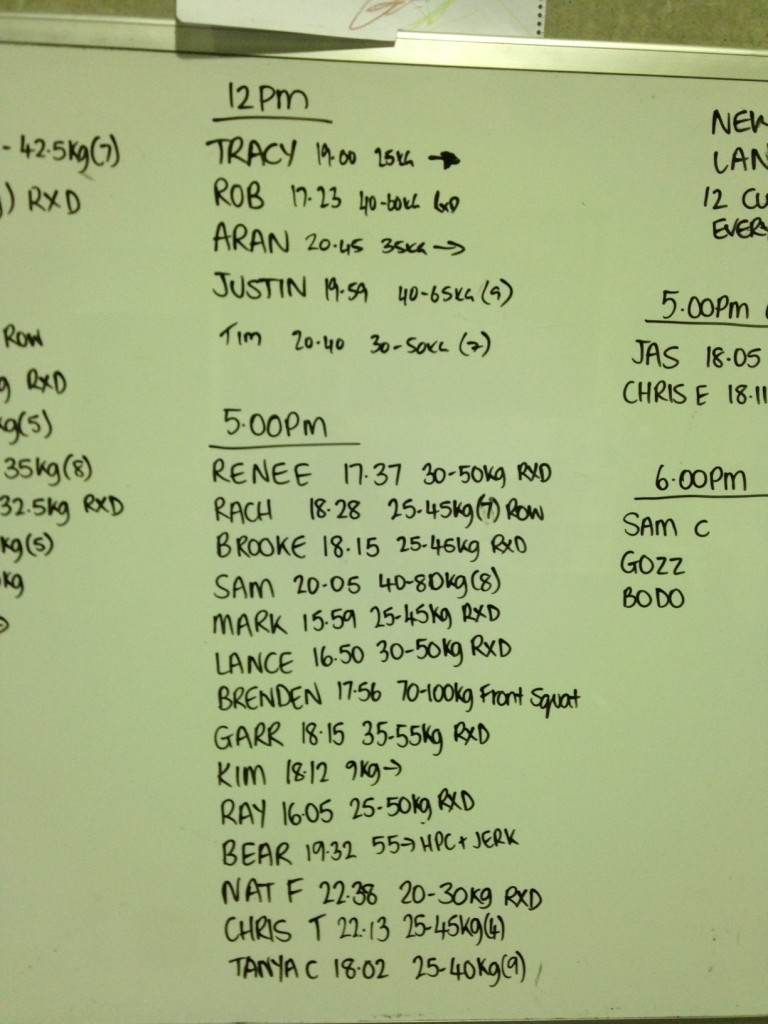 - 42.5kg(7)
) RXD
ROW
g RXD
kg(5)
35kg(8)
32.5kg RXD
kg(5)
kg
12pm
TRACY 19.00 25KG →
ROB 17.23 40-60KG RXD
ARAN 20.45 35KG →
JUSTIN 19.59 40-65KG (9)
TIM 20.40 30-50KG (7)
5.00pm
RENEE 17.37 30-50kg RXD
RACH 18.28 25-45kg(7) ROW
BROOKE 18.15 25-45kg RXD
SAM 20.05 40-80kg(8)
MARK 15.59 25-45kg RXD
LANCE 16.50 30-50kg RXD
BRENDEN 17.56 70-100kg Front Squat
GARR 18.15 35-55kg RXD
KIM 18.12 9kg→
RAY 16.05 25-50kg RXD
BEAR 19.32 55→ HPC + JERK
NAT F 22.38 20-30kg RXD
CHRIS T 22.13 25-45kg(4)
TANYA C 18.02 25-40kg(9)
NEW
LAN
12 CU
EVERY
5.00pm
JAS 18.05
CHRIS E 18.11
6.00pm
SAM C
GOZZ
BODO